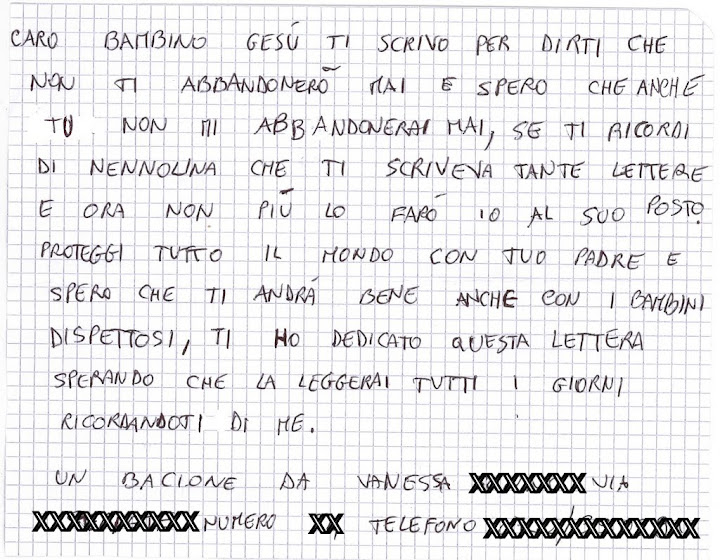 CARO BAMBINO GESÚ TI SCRIVO PER DIRTI CHE
NON TI ABBANDONERÓ MAI E SPERO CHE ANCHE
TU NON MI ABBANDONERAI MAI, SE TI RICORDI
DI NENNOLINA CHE TI SCRIVEVA TANTE LETTERE
E ORA NON PIÚ LO FARÓ IO AL SUO POSTO.
PROTEGGI TUTTO IL MONDO CON TUO PADRE E
SPERO CHE TI ANDRÁ BENE ANCHE CON I BAMBINI
DISPETTOSI, TI HO DEDICATO QUESTA LETTERA
SPERANDO CHE LA LEGGERAI TUTTI I GIORNI
RICORDANDOTI DI ME.
UN BACIONE DA VANESSA XXXXXXXX VIA
NUMERO XX TELEFONO